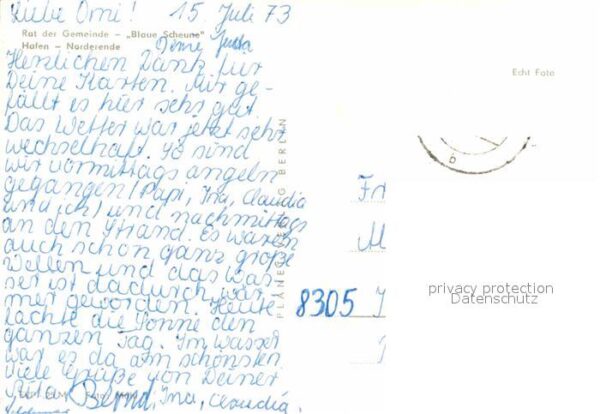 Liebe Omi! 15. Juli 73
Rat der Gemeinde – „Blaue Scheune"
Hafen – Norderende
Deine Jutta
Herzlichen Dank für
Deine Karten. Mir ge-
fällt es hier sehr gut.
Das Wetter war jetzt sehr
wechselhaft. So sind
wir vormittags angeln
gegangen (Papi, Ina, Claudia
und ich) und nachmittags
an den Strand. Es waren
auch schon ganz große
Wellen und das Was-
ser ist dadurch wär-
mer geworden. Heute
lachte die Sonne den
ganzen Tag. Im Wasser
war es da am schönsten.
Viele Grüße von Deiner
Bernd, Ina, Claudia,
Echt Foto
BERLIN
8305
privacy protection
Datenschutz